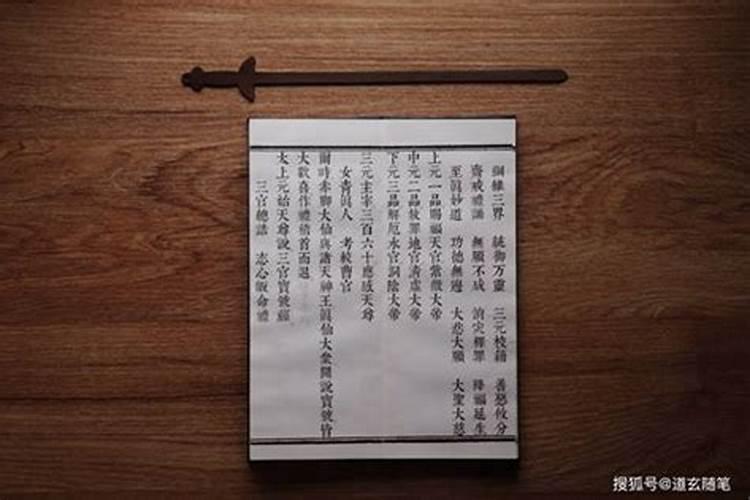 綱維三界　統御万靈　三元校籍　善惡攸分
齋戒禮誦　無願不成　消災釋罪　降福延生
至眞妙道　功德無邊　大悲大願　大聖大慈
上元一品賜福天官紫微大帝
中元二品赦罪地官清虛大帝
下元三品解厄水官洞陰大帝
三元主宰三百六十應感天尊
女青眞人　考較曹官
爾時赤腳大仙與諸天神王眞仙大衆聞說寶號皆
大歡喜作禮稽首而退
太上元始天尊說三官寶號經
三官總誥　志心皈命禮
搜狐号@道玄随笔